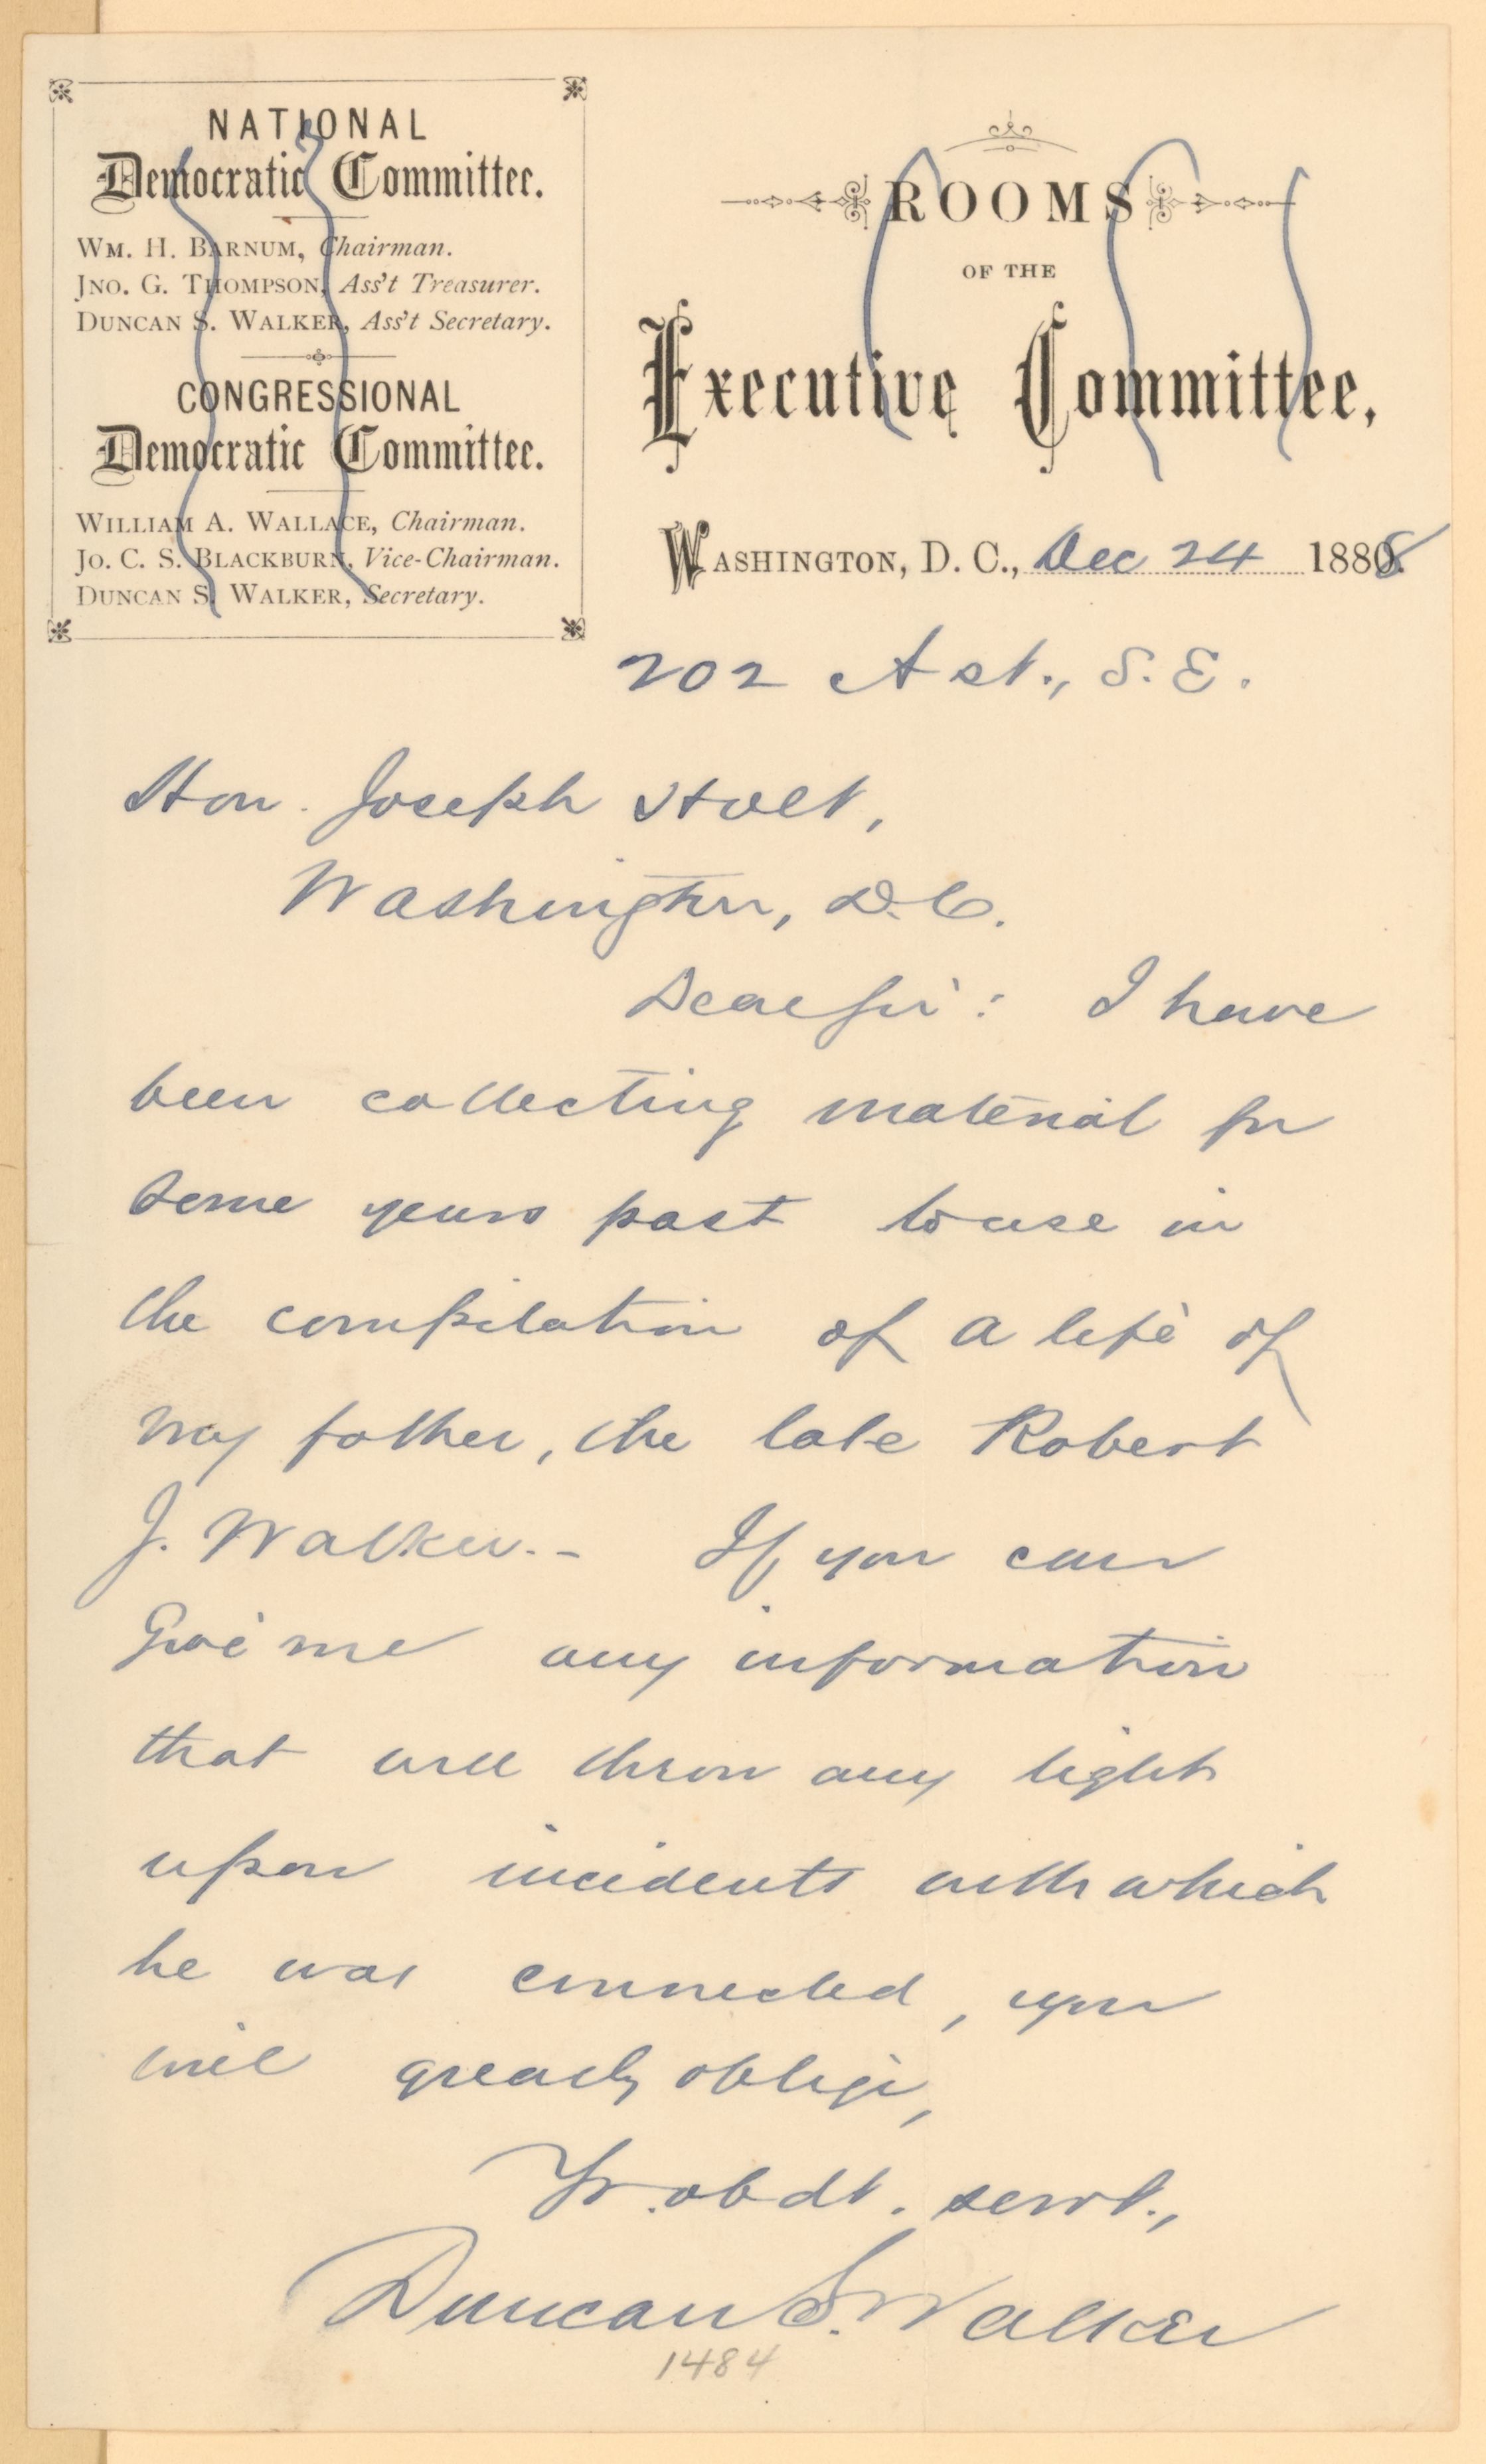 NATIONAL
Democratic Committee.
WM. H. BARNUM, Chairman.
JNO. G. THOMPSON, Ass't Treasurer.
DUNCAN S. WALKER, Ass't Secretary.
CONGRESSIONAL
Democratic Committee.
WILLIAM A. WALLACE, Chairman.
JO. C. S. BLACKBURN, Vice-Chairman.
DUNCAN S. WALKER, Secretary.
ROOMS
OF THE
Executive Committee,
WASHINGTON, D. C., Dec 24 1888
202 A st., S.E.
Hon. Joseph Holt,
Washington, D.C.
Dear Sir: I have
been collecting material for
some years past to use in
the compilation of a life of
my father, the late Robert
J. Walker. - If you can
give me any information
that will throw any light
upon incidents with which
he was connected, you
will greatly oblige,
Yr. obdt. servt.,
Duncan S. Walker
1484